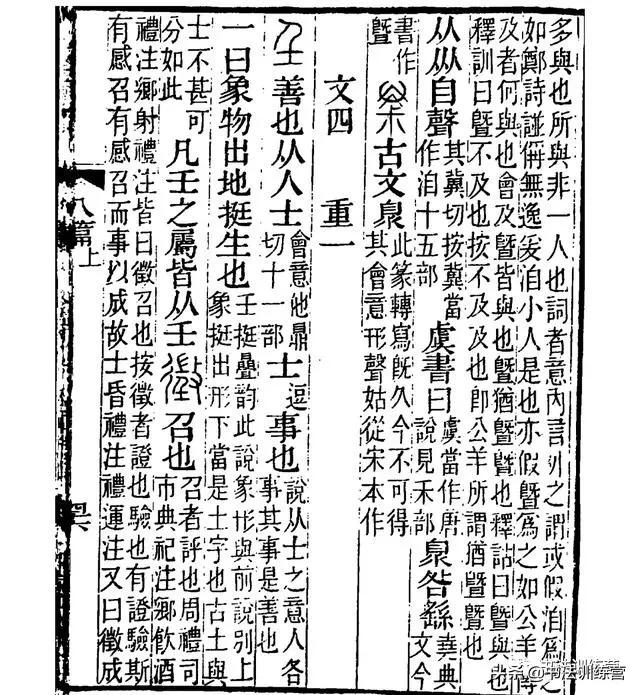 多與也所與非一人也詞者意內言外之謂或假洎爲
如鄭詩譜偁無逸爰洎小人是也亦假曁爲之如公羊傳
及者何與也會及曁皆與也曁猶曁曁也釋詁曰曁與也
釋訓曰曁不及也按不及及也卽公羊所謂猶曁曁也
从㐺自聲其冀切按冀當作洎十五部虞書曰虞當作唐說見禾部臮咎繇堯典文今
書作曁古文臮此篆轉寫旣久今不可得其會意形聲姑從宋本作
文四 重一
𡈼善也从人士會意他鼎切十一部士逗事也說从士之意人各事其事是善也
一曰象物出地挺生也壬挺疊韵此說象形與前說別上象挺出形下當是土字也古土與
士不甚可分如此凡壬之屬皆从壬徵召也召者評也周禮司市典祀注鄉飲酒
禮注鄉射禮注皆曰徵召也按徵者證也驗也有證驗斯
有感召有感召而事以成故士昏禮注禮運注又曰徵成
八篇上
头条@书法训练营